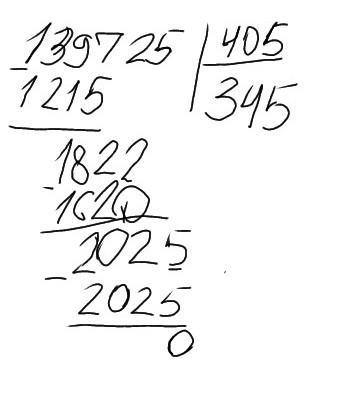 139725 405
1215 345
1822
1620
2025
2025
0